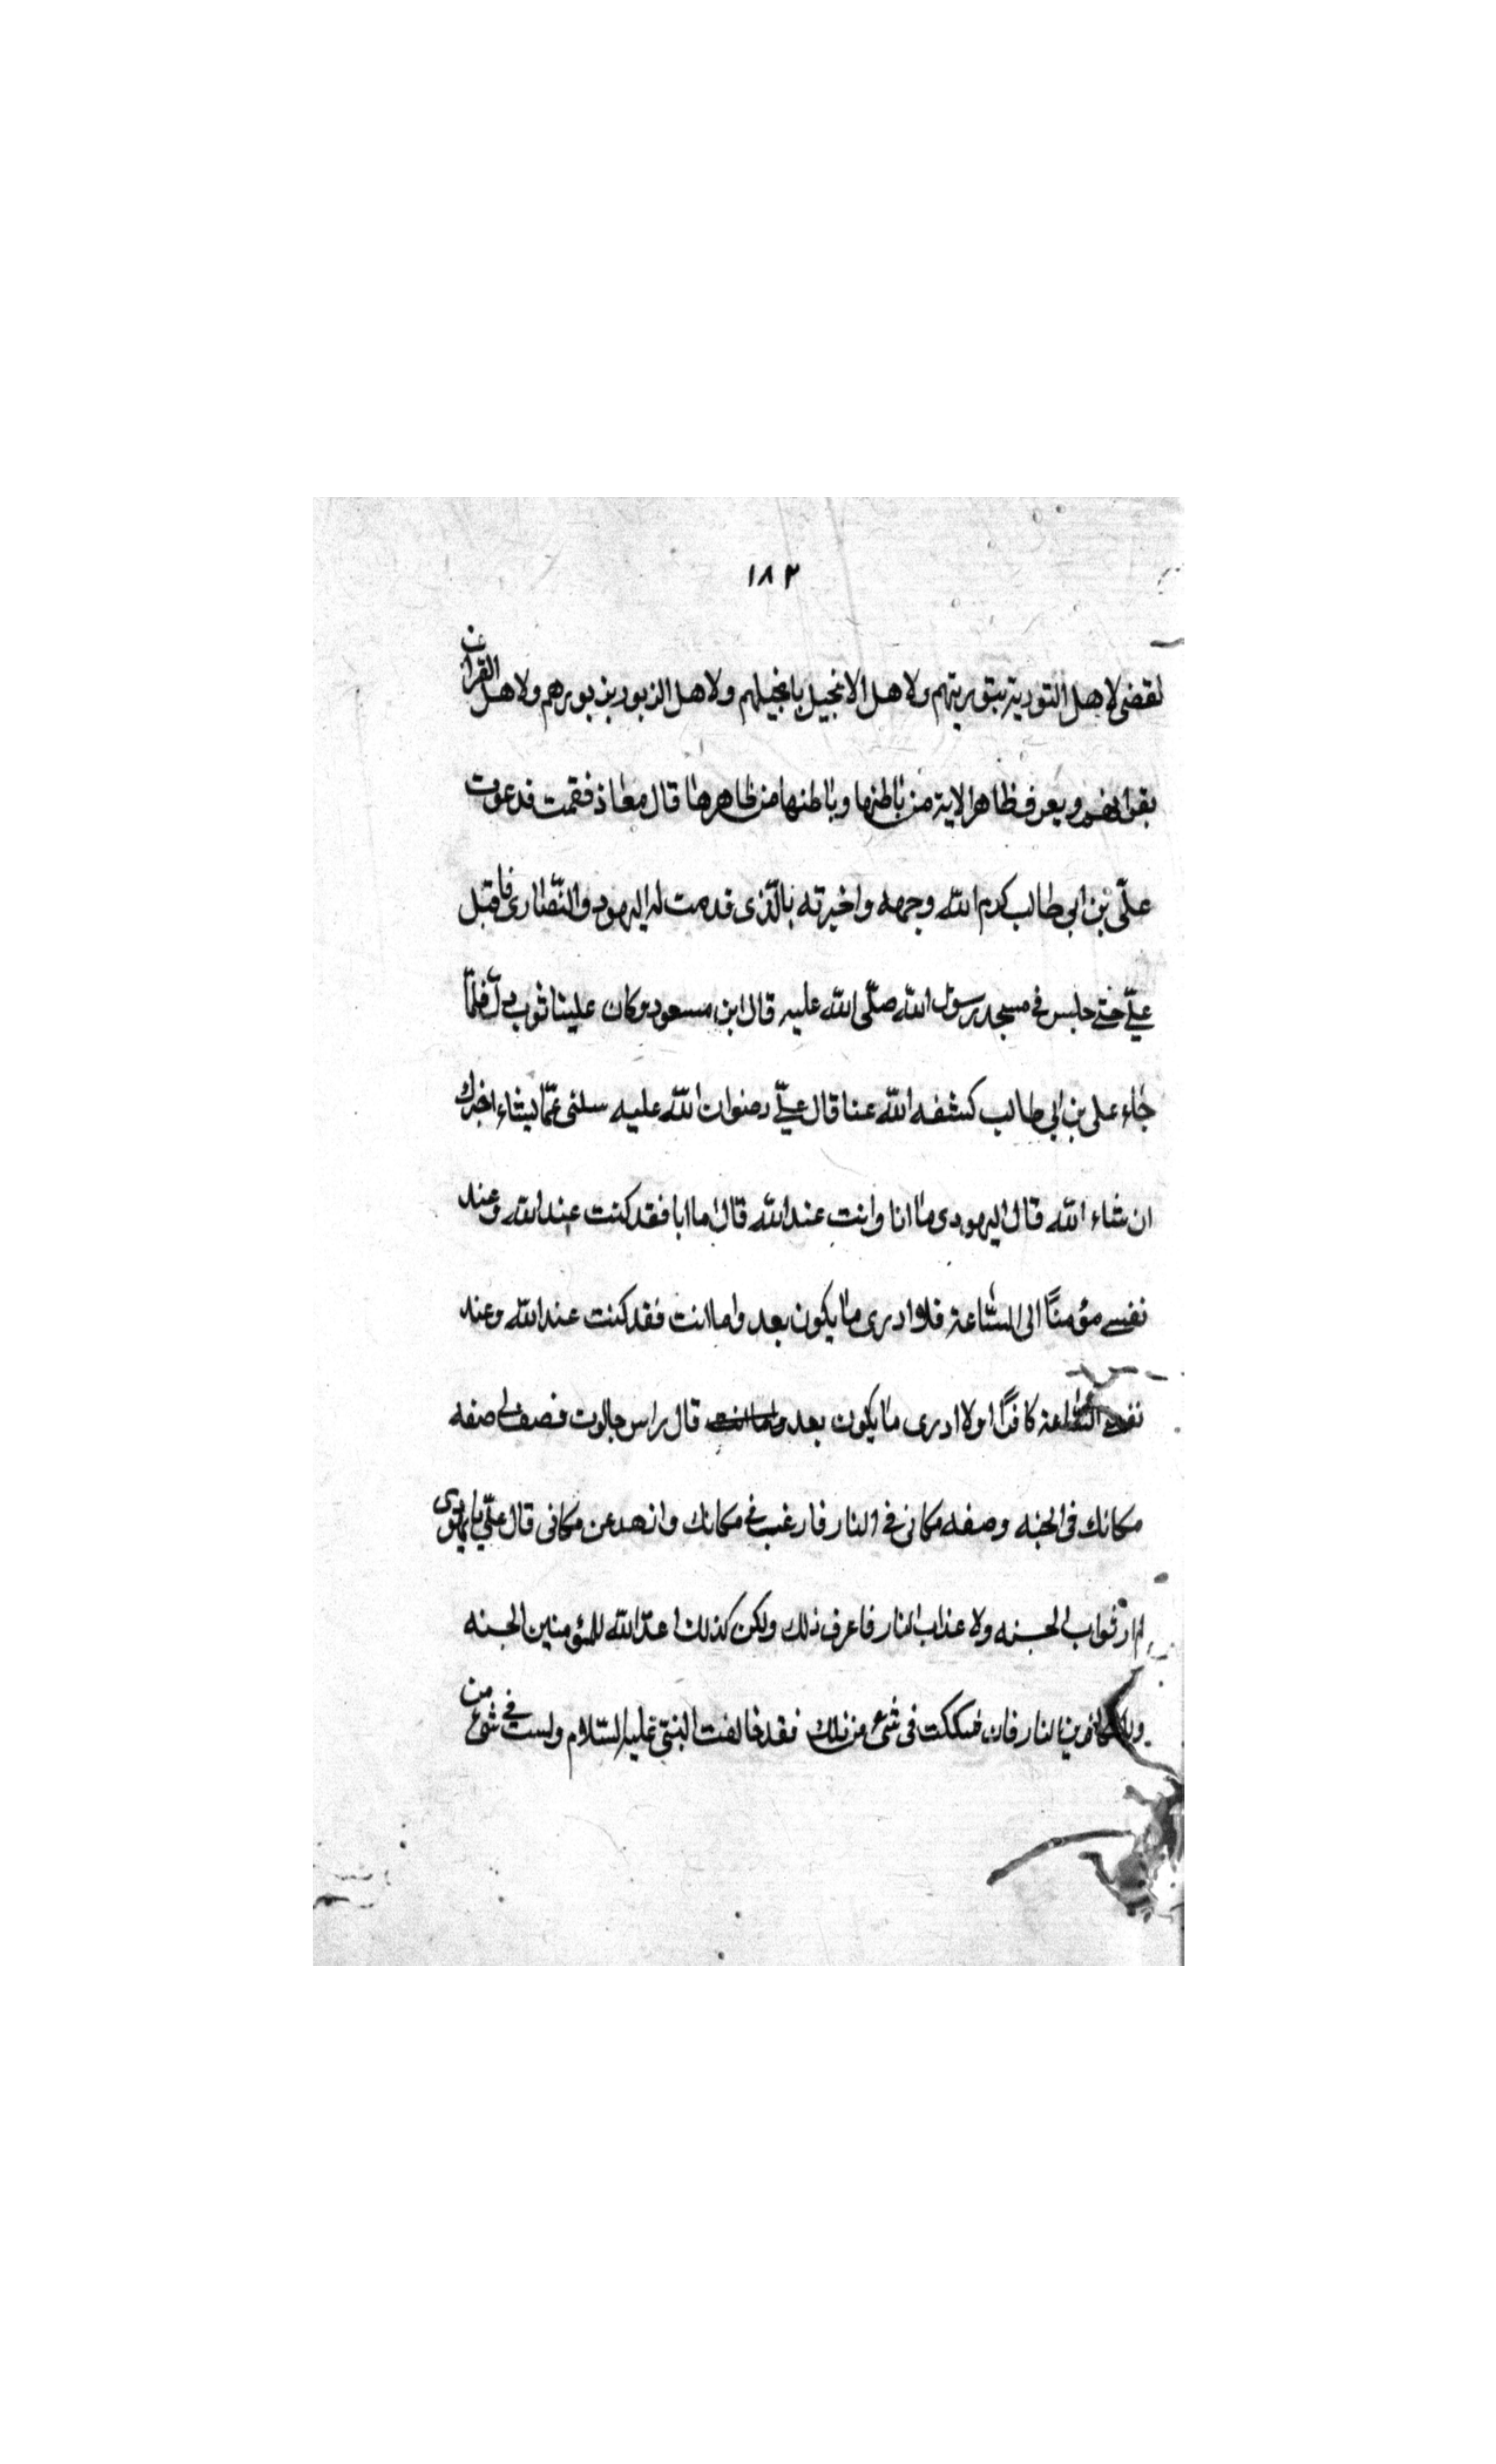 ١٨٢
لقضى لاهل التورية بتوريتهم ولاهل الانجيل بانجيلهم ولاهل الزبور بزبورهم ولاهل القران
بقرانهم ويعرف ظاهر الاية من باطنها وباطنها من ظاهرها قال معاذ فقمت فدعوت
علّى بن ابى طالب كرم الله وجهه واخبرته بالّذى قدمت له اليهود والنّصارى فاقبل
علىّ حتّى جلس فى مسجد رسول الله صلّى الله عليه قال ابن مسعود وكان علينا ثوب ذلّ فلمّا
جاء على بن ابى طالب كشفه الله عنا قال علىّ رضوان الله عليه سلنى عمّا تشاء اخبرك
ان شاء الله قال اليهودى ما انا وانت عند الله قال اما انا فقد كنت عند الله وعند
نفسى مؤمنًا الى السّاعة فلا ادرى ما يكون بعد واما انت فقد كنت عند الله وعند
نفسى السّاعة كافرًا ولا ادرى ما يكون بعد قال راس جالوت فصف لى صفه
مكانك فى الجنه وصفه مكانى فى النار فارغب فى مكانك وازهد عن مكانى قال علّى يا يهودى
لم ار ثواب الجنه ولا عذاب النار فاعرف ذلك ولكن كذلك اعدّ الله للمؤمنين الجنه
وللكافرين النار فان شككت فى شئ من ذلك فقد خالفت النبىّ عليه السّلام ولست فى شئ من